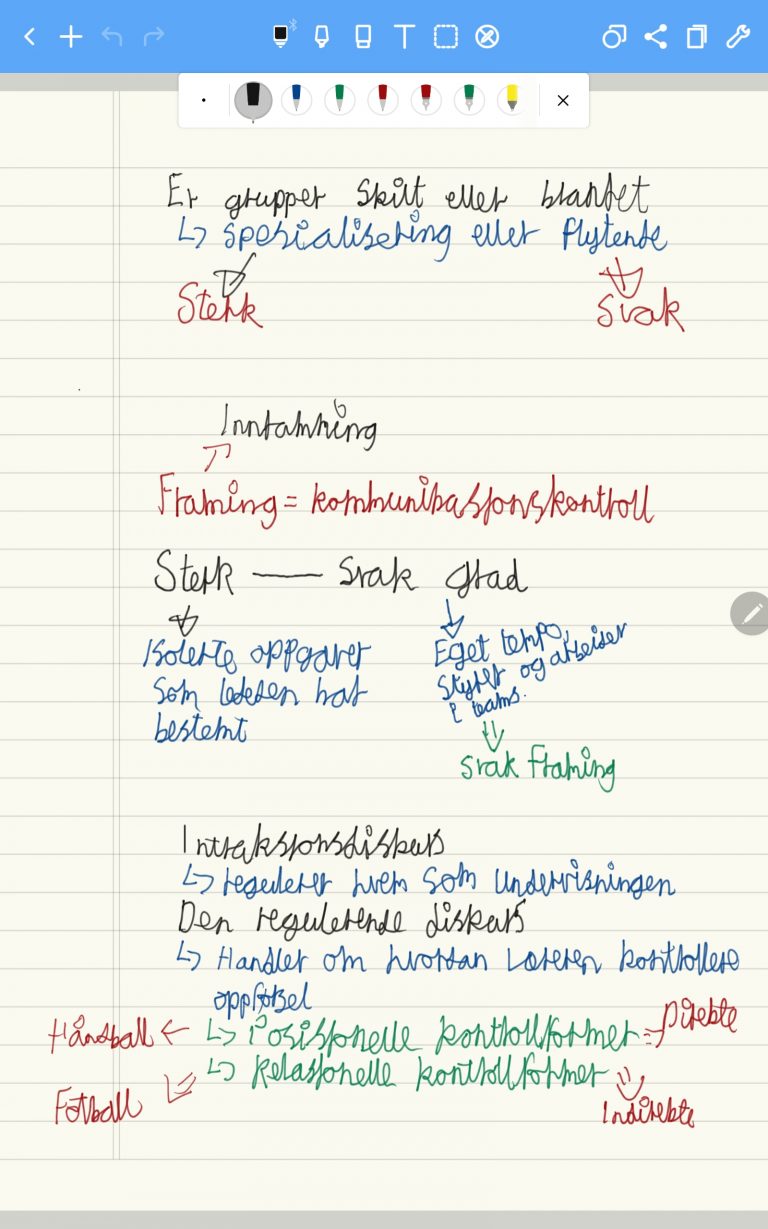 Er grupper skilt eller blandet
↳ spesialisering eller flytende
Sterk
Svak
Innramming
Framing = kommunikasjonskontroll
Sterk — svak grad
Isolerte oppgaver
som lederen har
bestemt
Eget tempo,
styrer og arbeider
i teams.
svak framing
Intruksjonsdiskurs
↳ regulerer hvem som undervisningen
Den regulerende diskurs
↳ Handler om hvordan Læreren kontrollere
oppførsel
Håndball ← ↳ Posisjonelle kontrollformer = Direkte
↳ Relasjonelle kontrollformer
Fotball
Indirekte